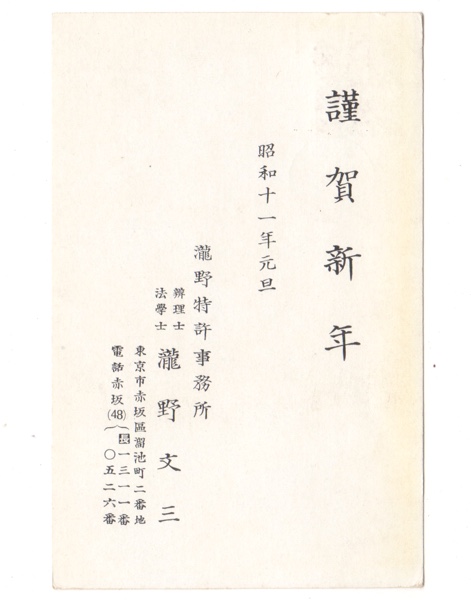 謹賀新年
昭和十一年元旦
瀧野特許事務所
辨理士
法學士
瀧野文三
東京市赤坂區溜池町二番地
電話赤坂(48){長一三一一番
〇五二六番